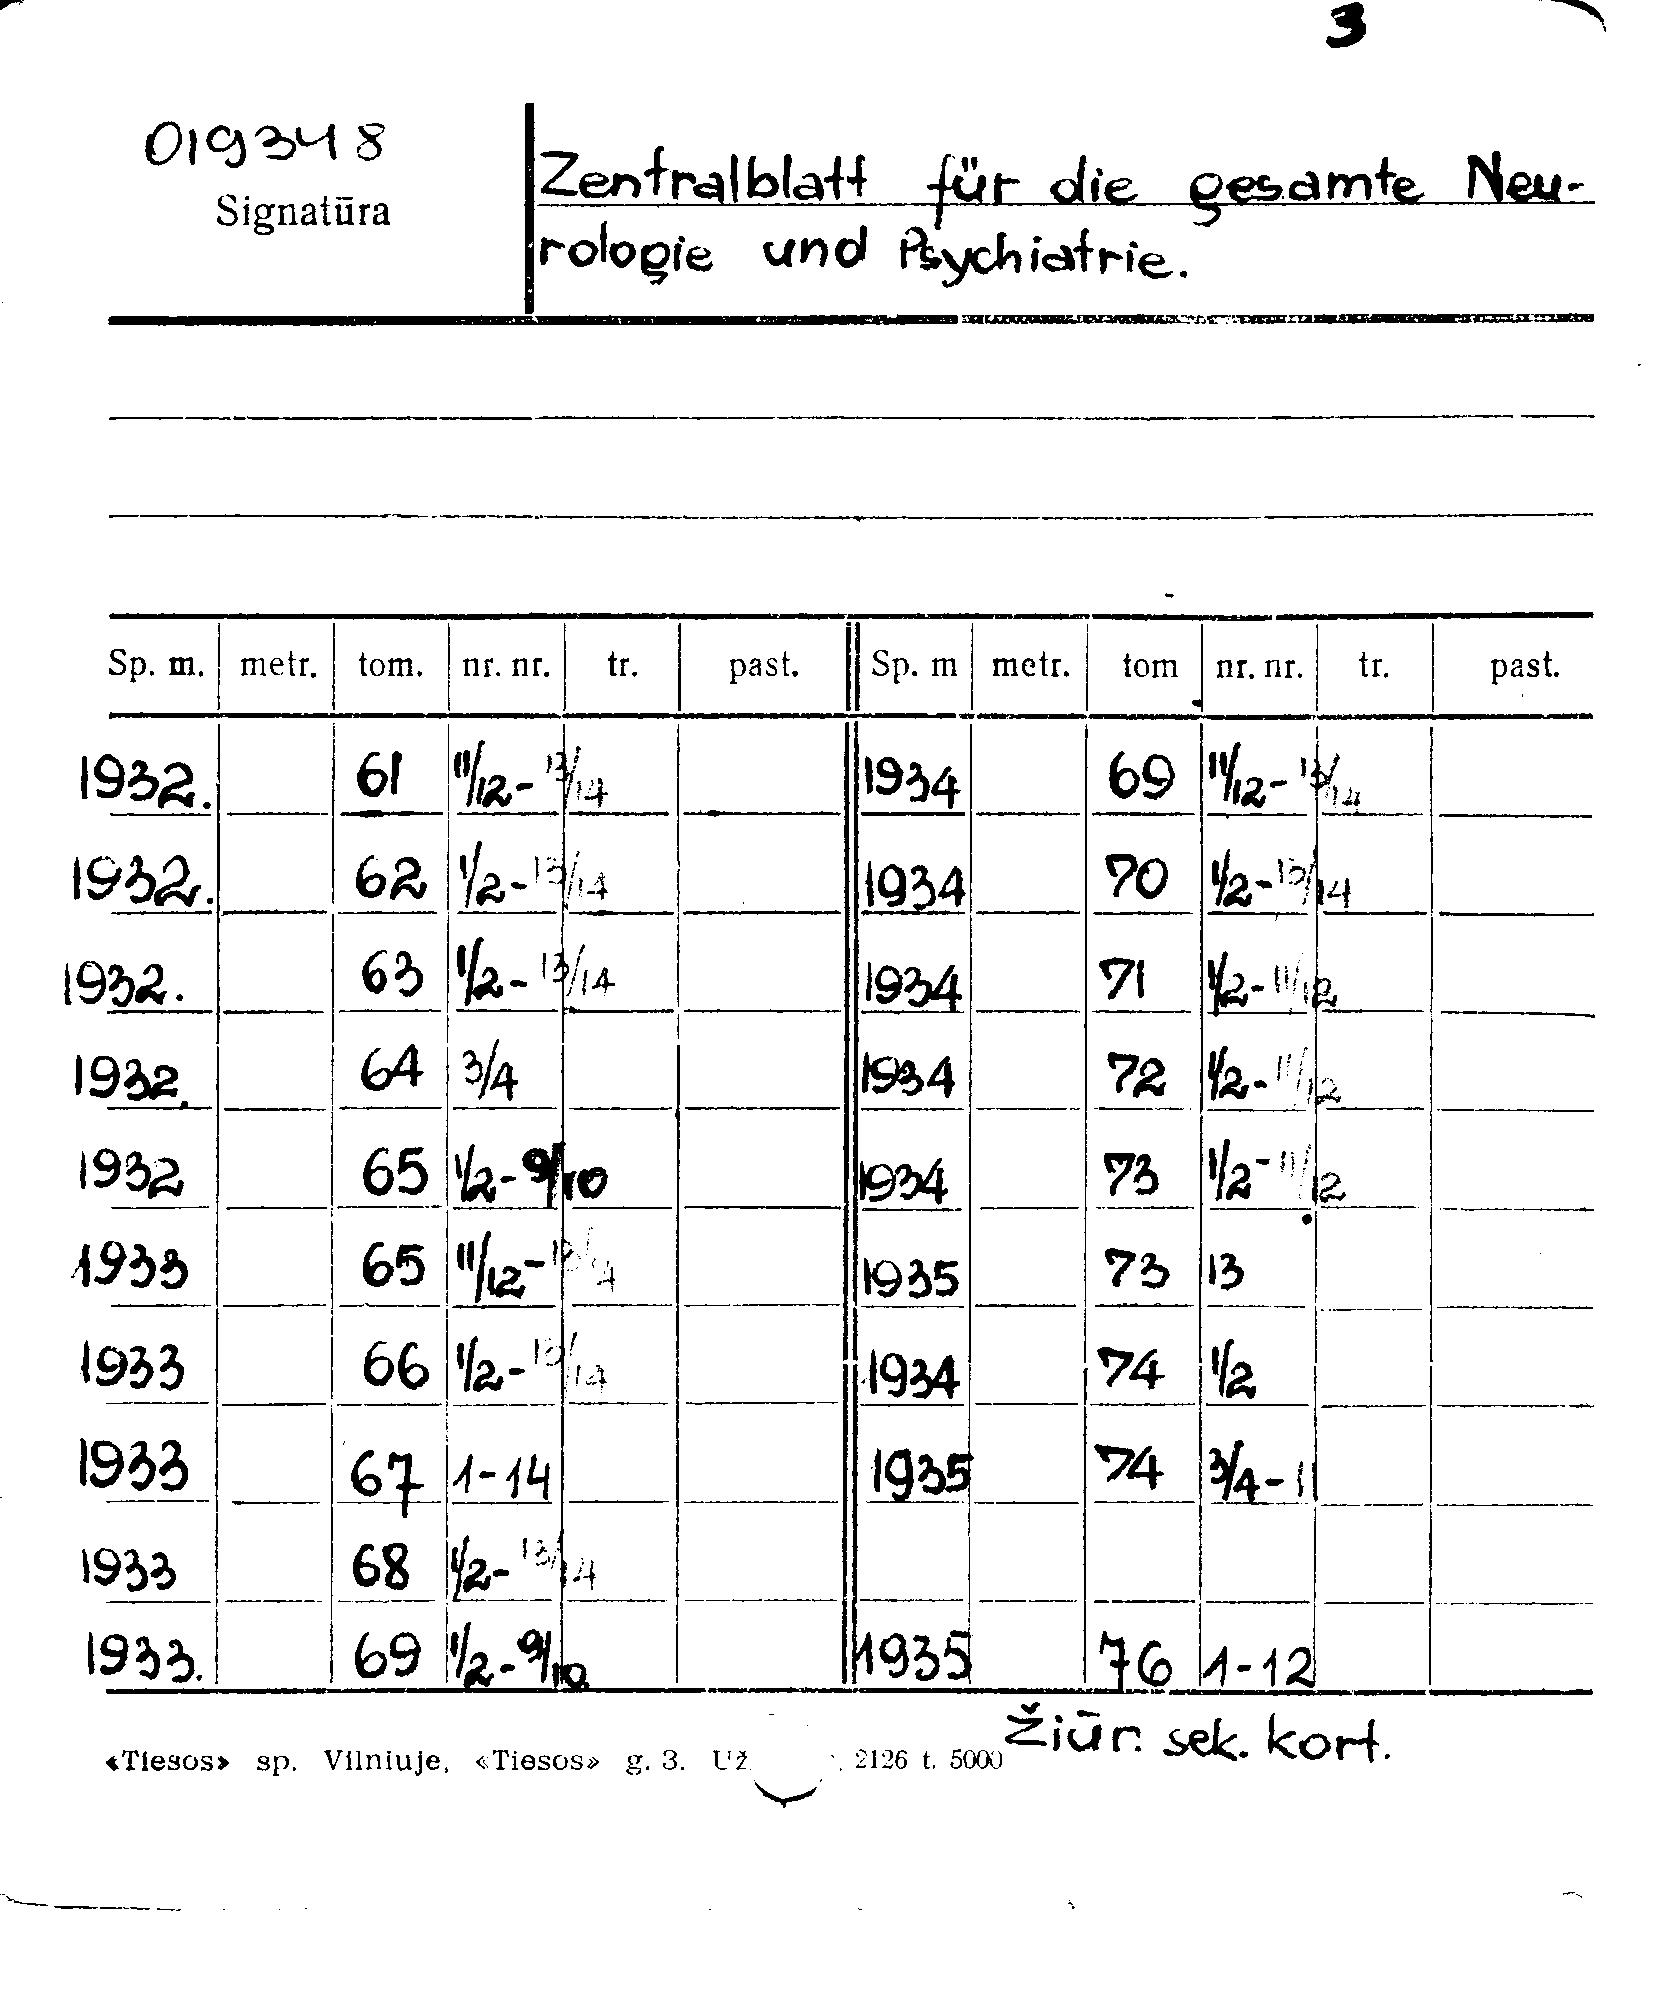 3
019348
Signatūra
Zentralblatt für die gesamte Neu-
rologie und Psychiatrie.
Sp. m. metr. tom. nr. nr. tr. past. Sp. m metr. tom nr. nr. tr. past.
1932. 61 11/12-13/14 1934 69 11/12-13/14
1932. 62 1/2-13/14 1934 70 1/2-13/14
1932. 63 1/2-13/14 1934 71 1/2-11/12
1932. 64 3/4 1934 72 1/2-11/12
1932 65 1/2-9/10 1934 73 1/2-11/12
1933 65 11/12-13/14 1935 73 13
1933 66 1/2-13/14 1934 74 1/2
1933 67 1-14 1935 74 3/4-11
1933 68 1/2-13/14
1933. 69 1/2-9/10 1935 76 1-12
Žiūr. sek. kort.
«Tiesos» sp. Vilniuje, «Tiesos» g. 3. Už 2126 t. 5000